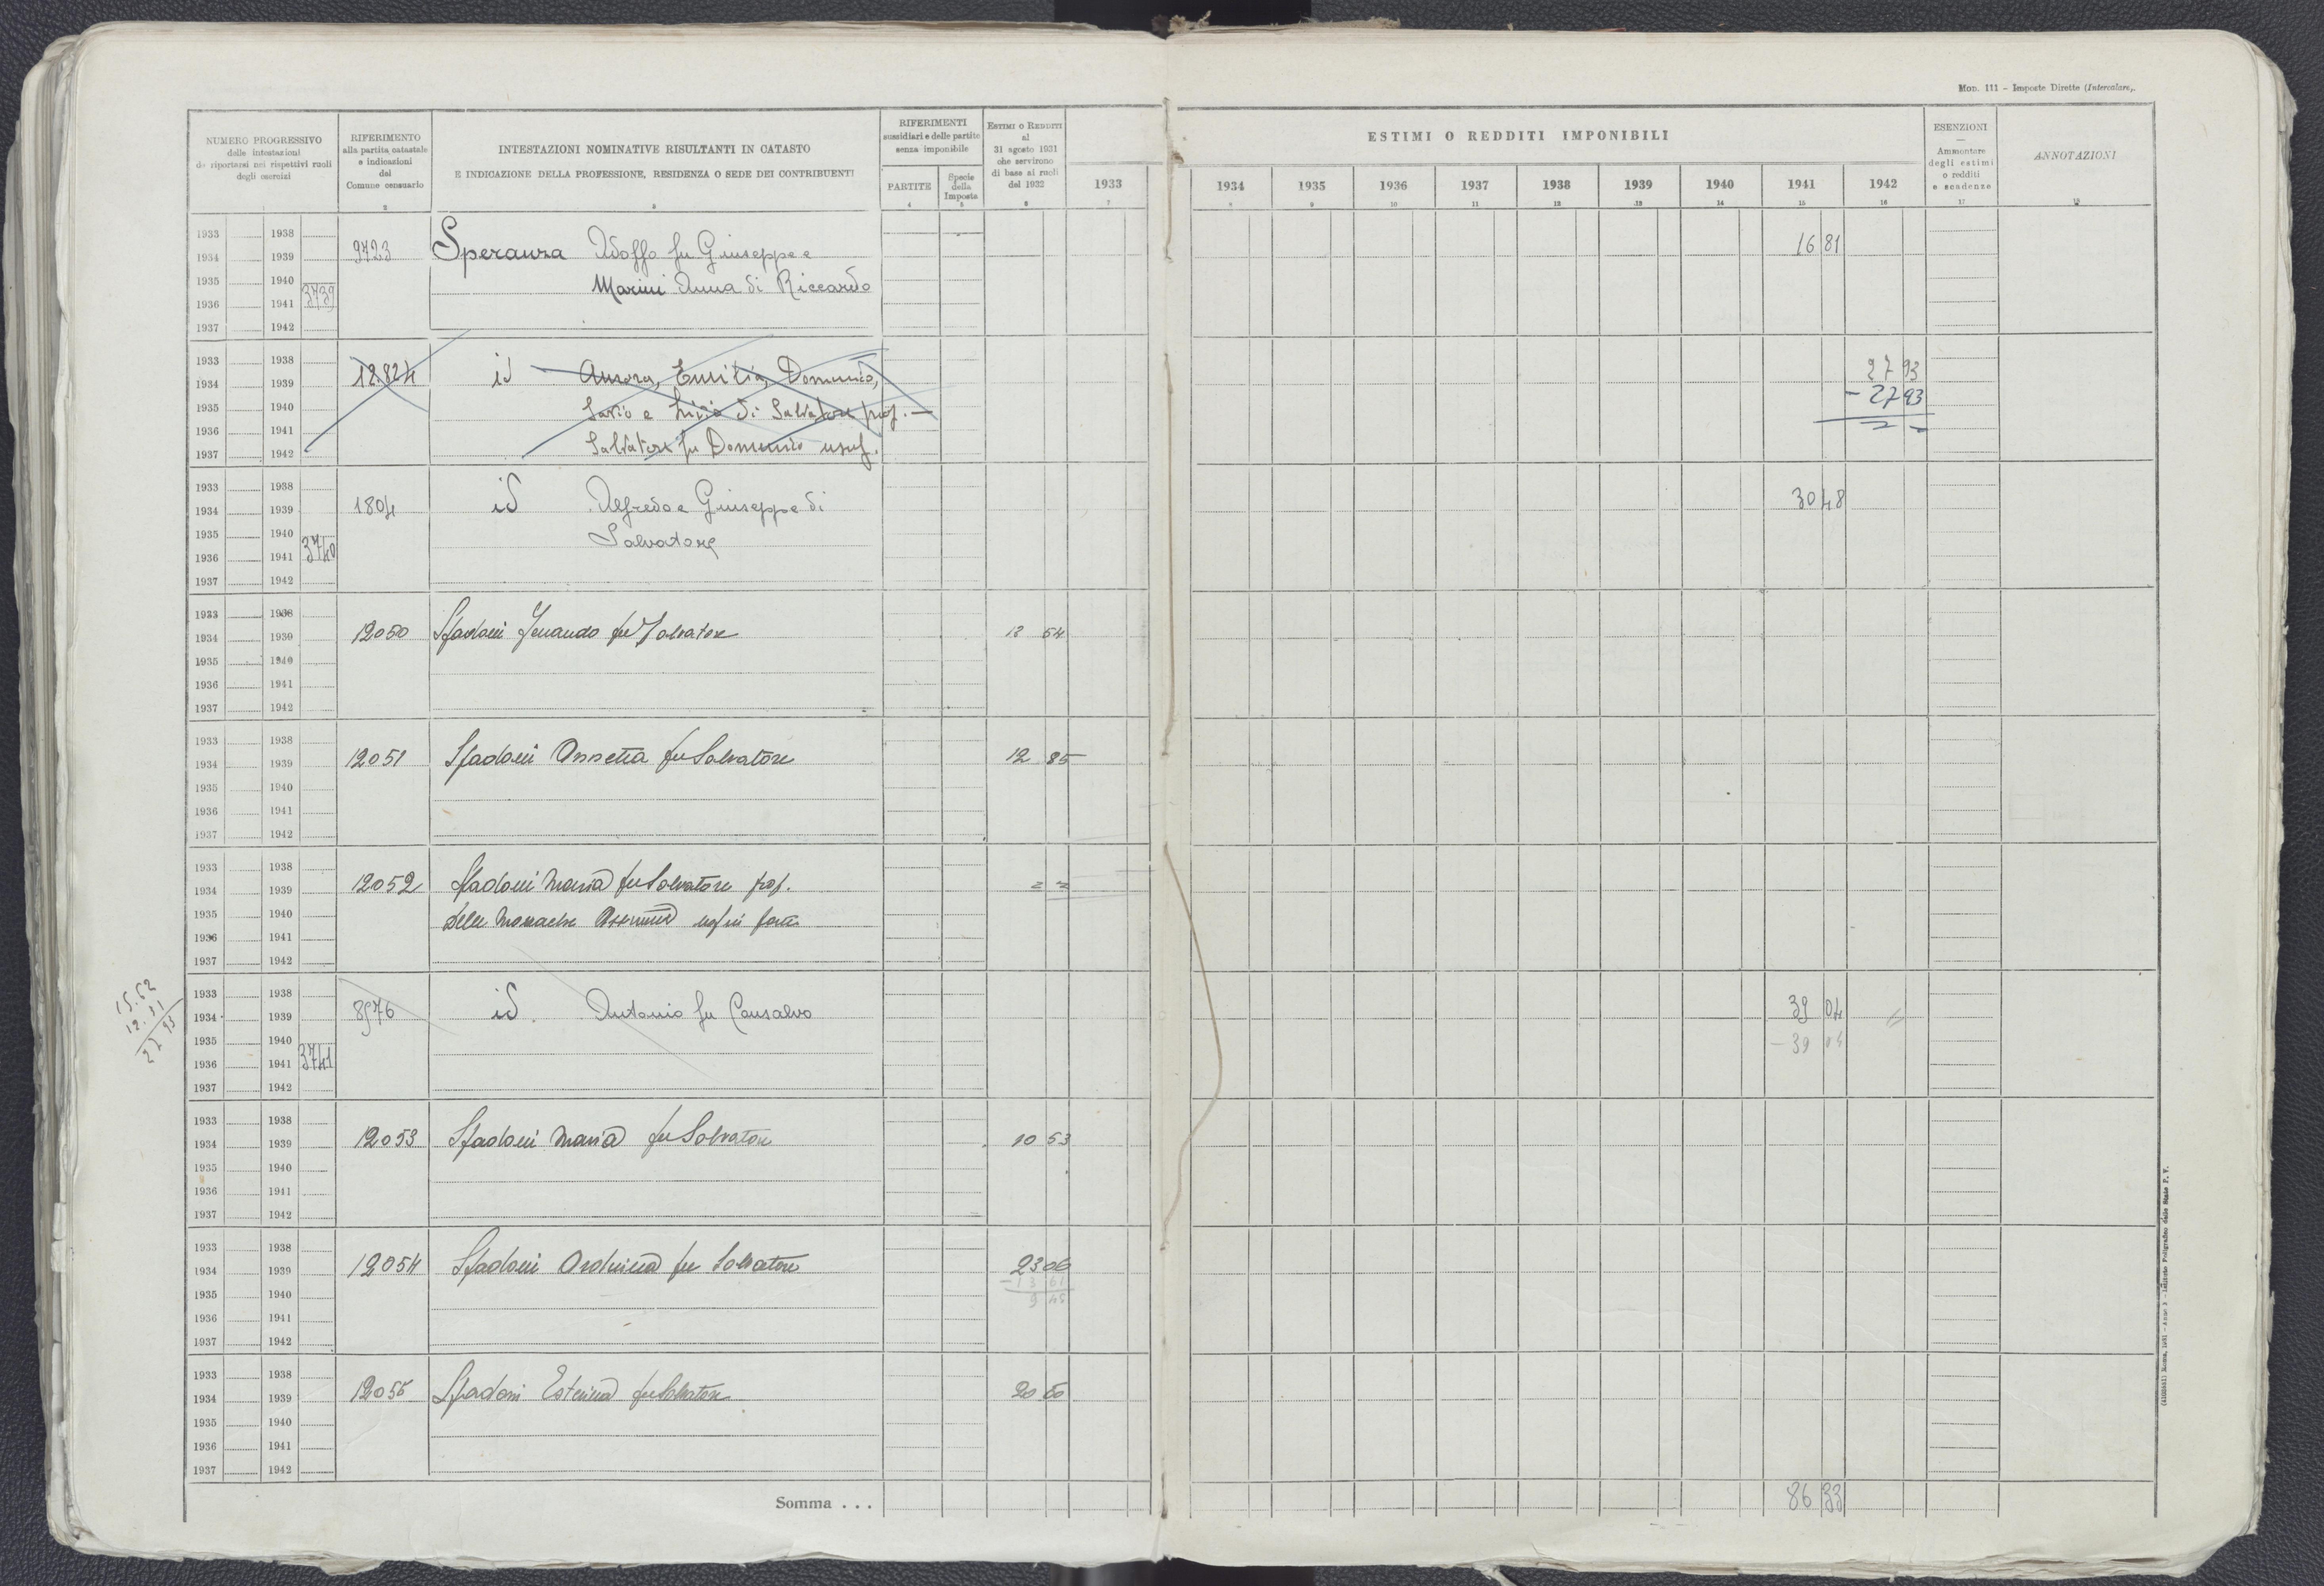 Mod. 111 – Imposte Dirette (Intercalare).
NUMERO PROGRESSIVO
delle intestazioni
da riportarsi nei rispettivi ruoli
degli esercizi
RIFERIMENTO
alla partita catastale
e indicazioni
del
Comune censuario
INTESTAZIONI NOMINATIVE RISULTANTI IN CATASTO
E INDICAZIONE DELLA PROFESSIONE, RESIDENZA O SEDE DEI CONTRIBUENTI
RIFERIMENTI
sussidiari e delle partite
senza imponibile
PARTITE
Specie
della
Imposta
ESTIMI O REDDITI
al
31 agosto 1931
che servirono
di base ai ruoli
del 1932
ESTIMI O REDDITI IMPONIBILI
1933 1934 1935 1936 1937 1938 1939 1940 1941 1942
ESENZIONI
—
Ammontare
degli estimi
o redditi
e scadenze
ANNOTAZIONI
2 3 4 5 6 7 8 9 10 11 12 13 14 15 16 17 18
1933 1938
1934 1939 9723 Speranza Adolfo fu Giuseppe e 16 81
1935 1940 Marini Anna di Riccardo
1936 1941 3739
1937 1942
1933 1938 27 93
1934 1939 12.824 id Aurora, Emilia, Domenico,
1935 1940 – 27 93
1936 1941 Savio e Livio di Salvatore prop. —
1937 1942 Salvatore fu Domenico usuf.
1933 1938 30 48
1934 1939 1804 id Alfredo e Giuseppe di
1935 1940 Salvatore
1936 1941 3740
1937 1942
1933 1938
1934 1939 12050 fu Salvatore 54
1935 1940
1936 1941
1937 1942
1933 1938
1934 1939 12051 Sfadoni Annetta fu Salvatore 12 85
1935 1940
1936 1941
1937 1942
1933 1938
1934 1939 12052 Sfadoni Maria fu Salvatore prop.
1935 1940 delle Monache
1936 1941
1937 1942
15.62
12.31
27 93
1933 1938
1934 1939 8576 id. Antonio fu Consalvo 39 04
1935 1940 – 39 04
1936 1941 3741
1937 1942
1933 1938
1934 1939 12053 Sfadoni Maria fu Salvatore 10 53
1935 1940
1936 1941
1937 1942
1933 1938
1934 1939 12054 Sfadoni Arduina fu Salvatore 23 06
– 13 61
1935 1940 9 45
1936 1941
1937 1942
1933 1938
1934 1939 12055 Sfadoni Esterina fu Salvatore 20 60
1935 1940
1936 1941
1937 1942
Somma . . . 86 33